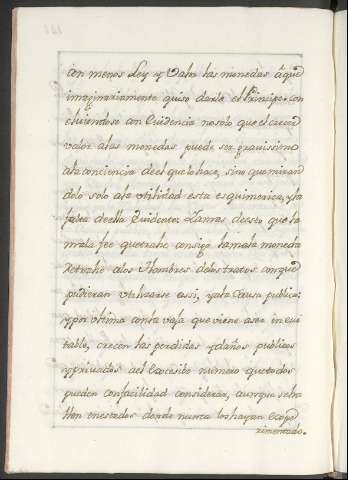 con menos Ley y Valor las monedas â que
imaginariamente quiso darle el Principe con
cluiendose con Evidencia no solo que el crecer
valor a las monedas puede ser gravissimo
a la conciencia de el que lo hace, sino que miran
dolo solo a la utilidad esta es quimerica, y la
falta de ella Evidente: Lamas de esto que la
mala fee que trahe consigo la mala moneda
retrahe a los Hombres de los tratos con que
pudieran utilizarse assi, y a la Causa publica:
y por ultima conta vaja que viene a ser inevi
table, crecen las perdidas y daños publicos
y privados a el Excesibo numero que todos
pueden con facilidad considerar, aunque se ha
llen en estados donde nunca los hayan Expe
rimentado.